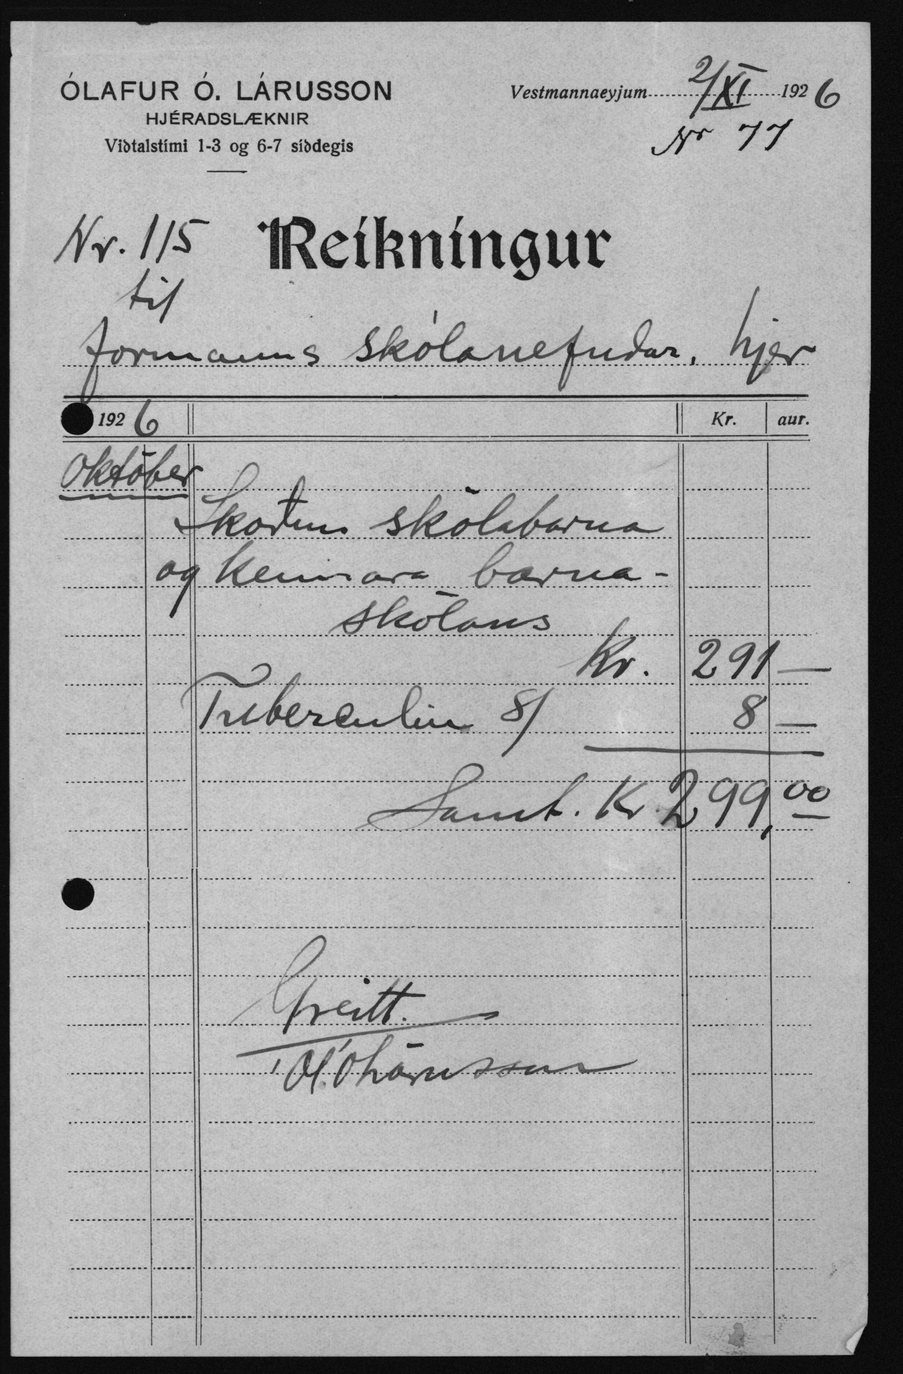 ÓLAFUR Ó. LÁRUSSON
HJÉRADSLÆKNIR
Viðtalstími 1-3 og 6-7 síðdegis
Vestmannaeyjum 2/XI 1926
Nr 77
Nr. 115
Reikningur
til
formanns skólanefndar, hjer
1926 Kr. aur.
Október
Skoðun skólabarna
og kennara barna-
skólans
Kr. 291 —
Tuberculin 8/ 8 —
Samt. Kr. 299,00
Greitt.
Ól. Ó. Lárusson